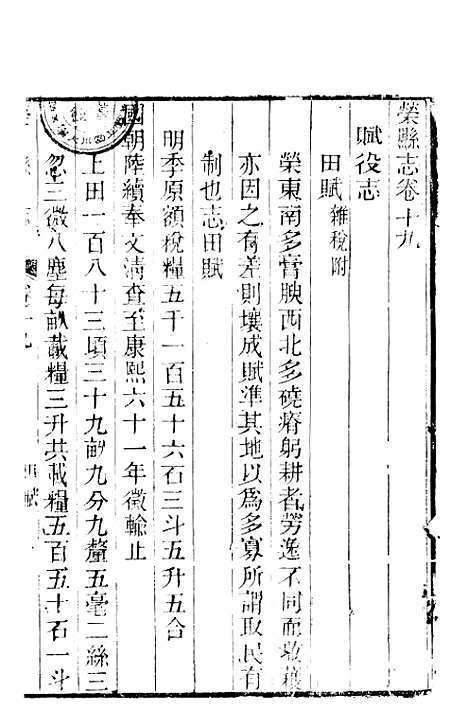 榮縣志卷十九
賦役志
田賦 雜稅附
榮東南多膏腴西北多磽瘠躬耕者勞逸不同而收穫
亦因之有差則壤成賦準其地以爲多寡所謂取民有
制也志田賦
明季原額稅糧五千一百五十六石三斗五升五合
國朝陸續奉文清查至康熙六十一年徵輸止
上田一百八十三頃三十九畝九分九釐五毫二絲三
忽三微八塵每畝載糧三升共載糧五百五十石一斗